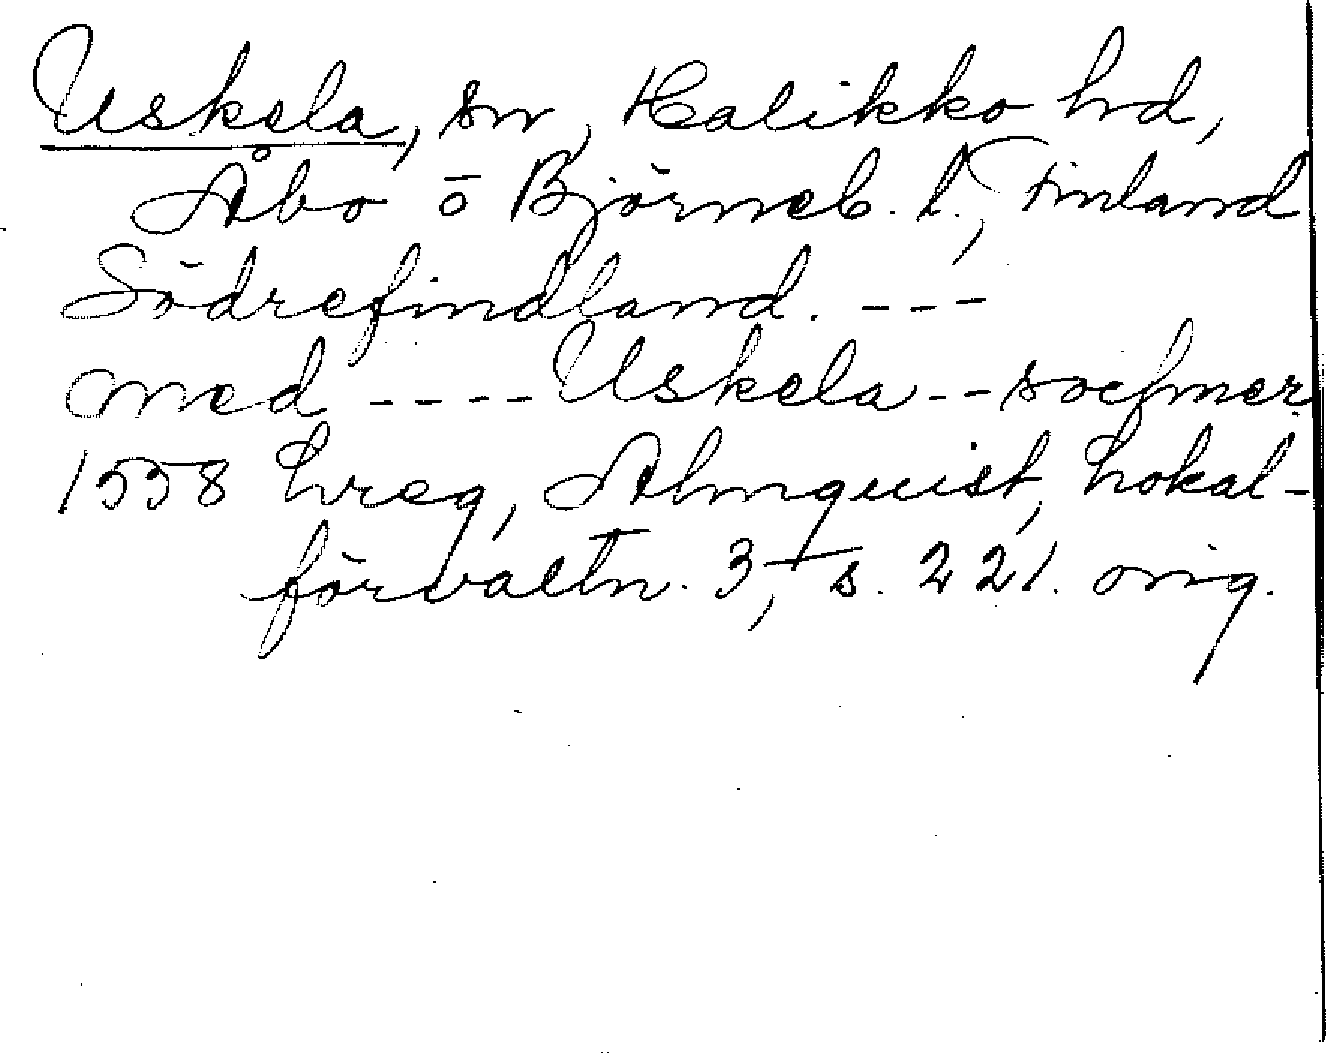 Uskela, sn, Halikko hd,
Åbo o Björneb. l., Finland
Södrefindland. ---
med ---- Uskela -- sochner
1558 hreg, Almquist, Lokal-
förvaltn. 3, s. 221. orig.